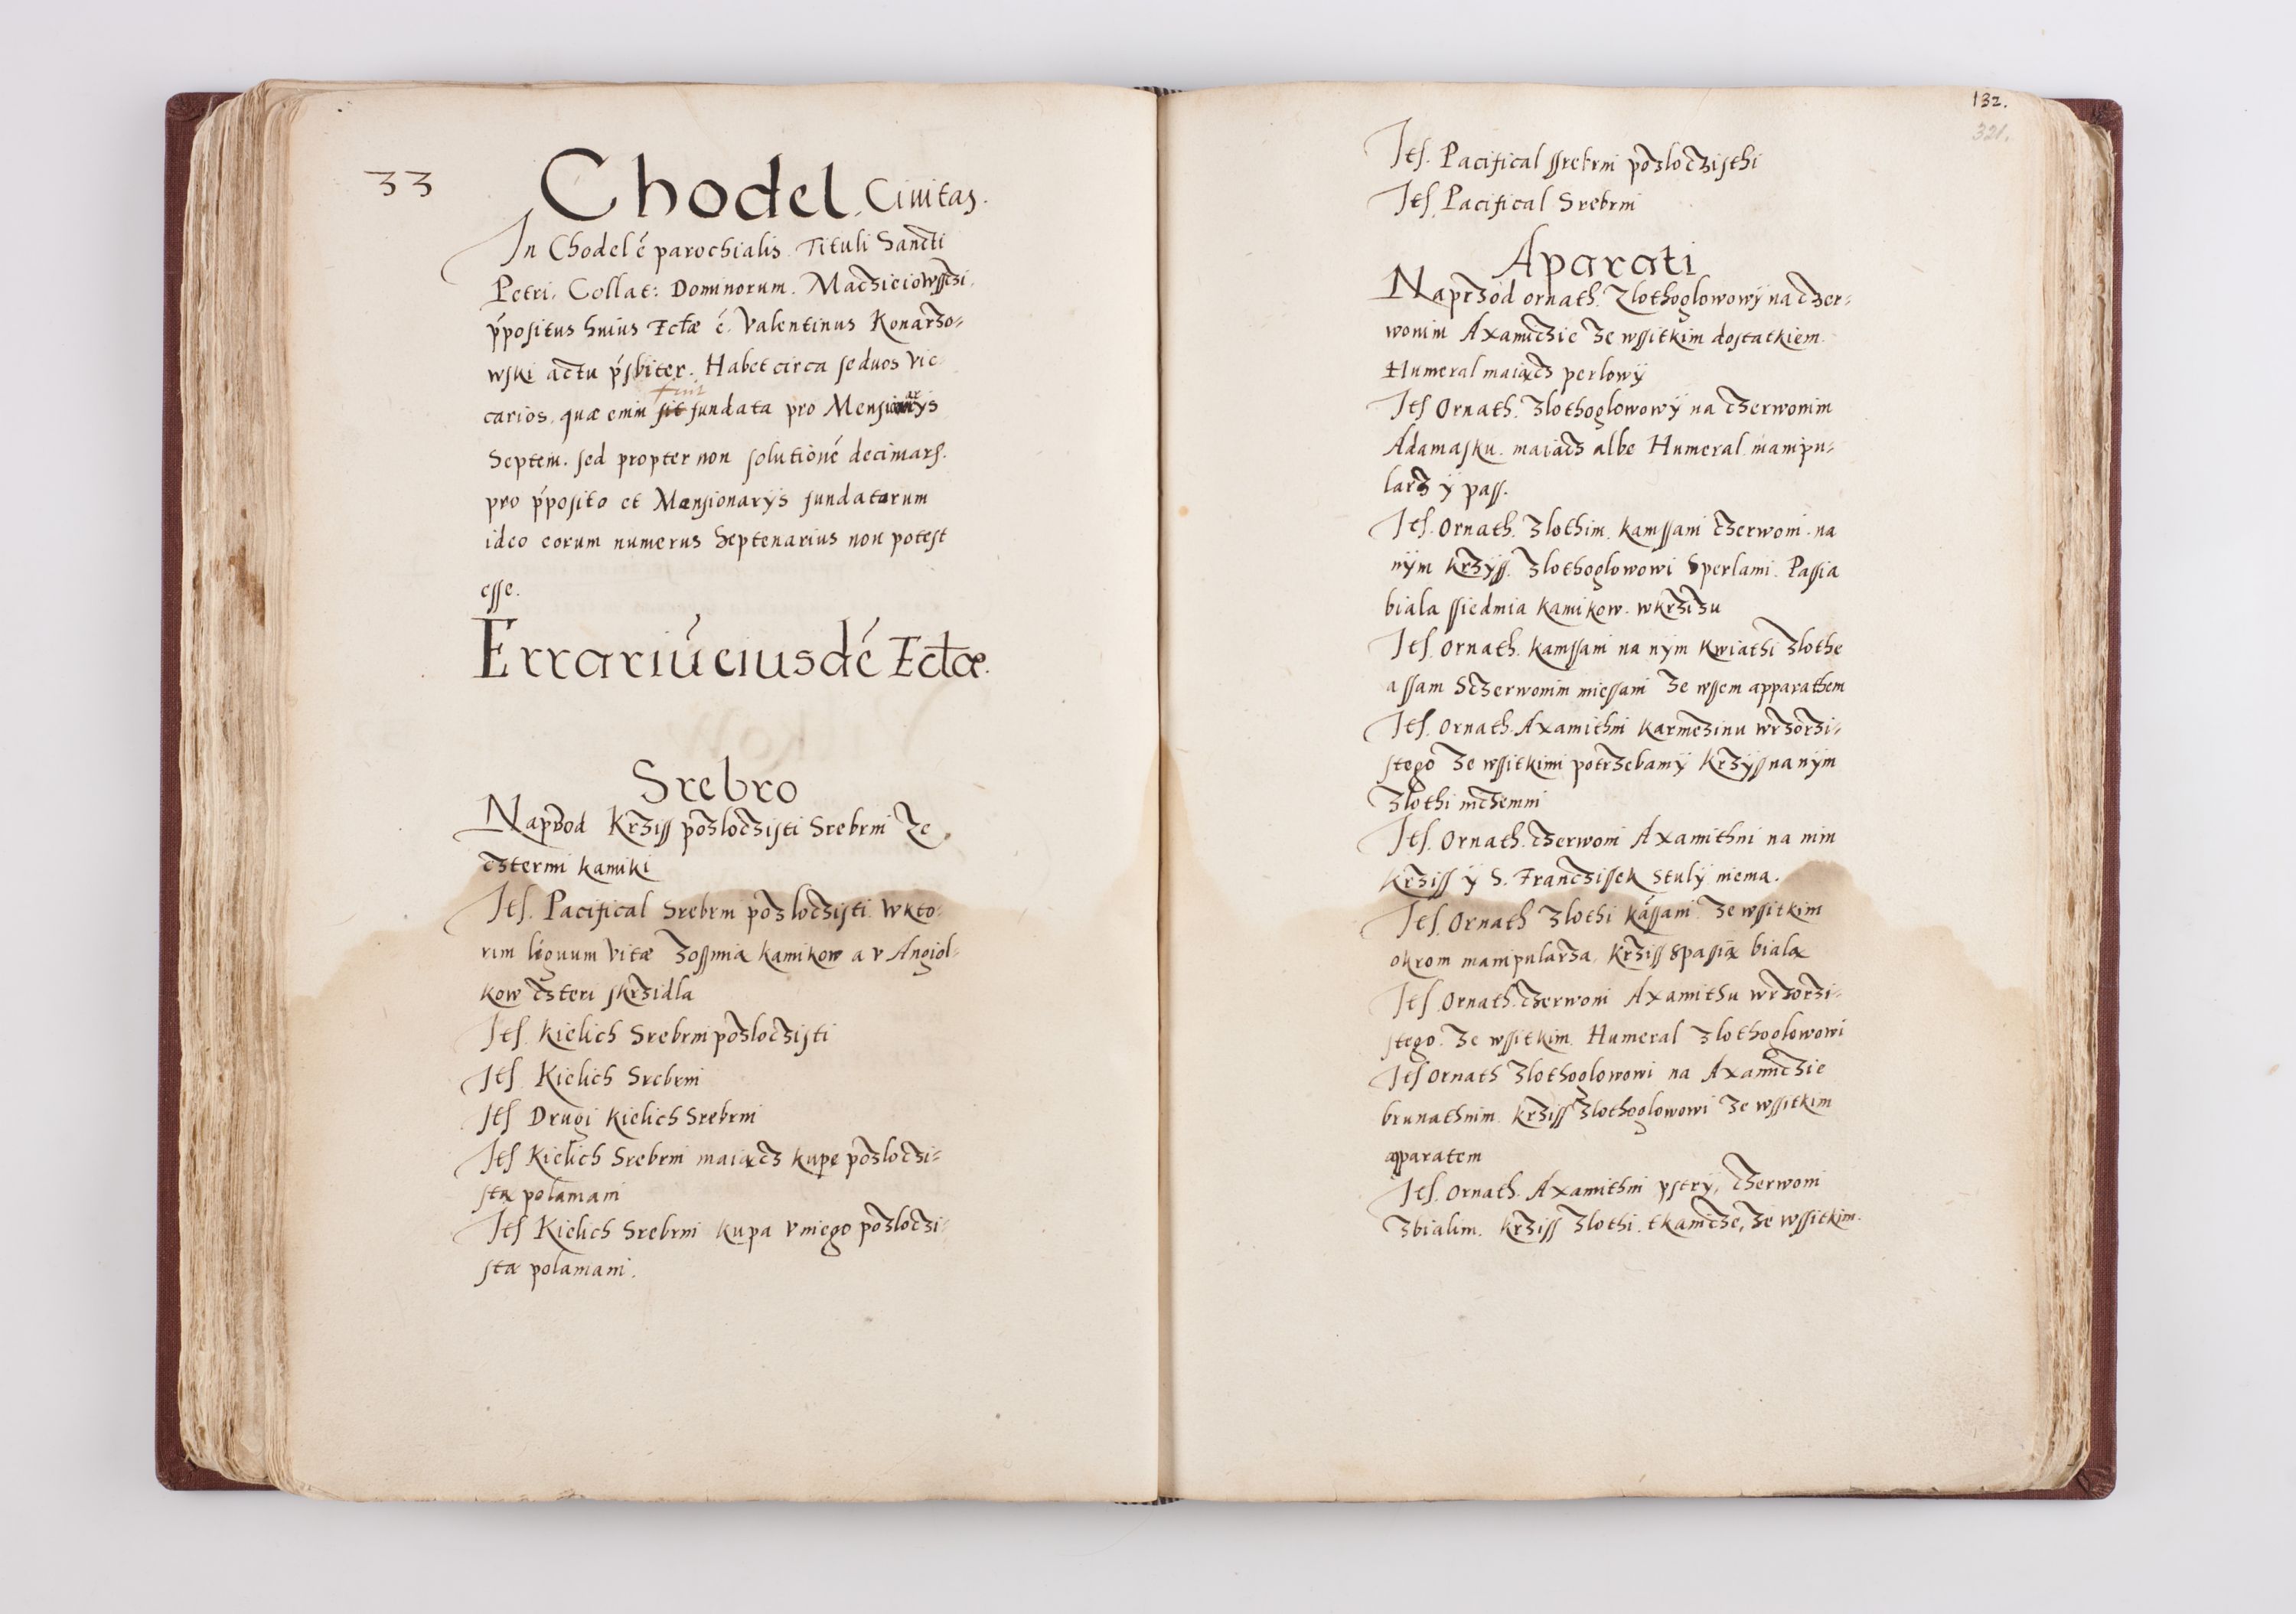 33
Chodel. Civitas.
In Chodel é parochialis. Tituli Sancti
Petri. Collat: Dominorum. Maczieiowssczi.
p̃positus huius Ecłæ é. Valentinus Konarzo=
wski actu p̃sbiter. Habet circa se duos Vic
carios. quæ enim fuit sit fundata pro Mensionarÿs
Septem. sed propter non solutioné decimarʃ.
pro p̃posito et Mansionarÿs fundatarum
ideo eorum numerus Septenarius non potest
esse.
Errariú eiusdé Ecłæ.
Srebro
Naprzod Krziss pozloczisti Srebrni Ze
cztermi kamiki
Itʃ. Pacifical Srebrni pozloczisti. Wkto=
rim lignum Vitæ Zossmią kamikow a v Angiol=
kow czteri skrzidla
Itʃ. Kielich Srebrni pozloczisti
Itʃ. Kielich Srebrni
Itʃ Drugi Kielich Srebrni
Itʃ Kielich Srebrni maiącz kupę pozloczi=
stą polamani
Itʃ Kielich Srebrni kupa v niego pozloczi=
sta polamani.
132.
321.
Itʃ. Pacifical ssrebrni pozloczisthi
Itʃ. Pacifical Srebrni
Aparati
Naprzod ornath. Zlothoglowowÿ na czer=
wonim Axamiczie Ze wssitkim dostatkiem.
Humeral maiącz perlowÿ
Itʃ Ornath. Zlothoglowowÿ na czerwonim
Adamasku. maiacz albe Humeral. manipu=
larz ÿ pass.
Itʃ. Ornath. Zlothim. kamssani czerwoni. na
nÿm krzÿss. Zlothoglowowi Sperlami. Passia
biala ssiedmia kamikow. wkrziżu
Itʃ. Ornath. kamssani na nÿm kwiathi Zlothe
a ssam Sczerwonim miessani Ze wssem apparathem
Itʃ. Ornath. Axamithni karmezinu wrzorzi=
stego Ze wssitkimi potrzebamÿ Krzÿss na nÿm
Zlothi niczemni
Itʃ. Ornath. czerwoni Axamithni na nim
Krziss ÿ S. Franczissek Stulÿ niema.
Itʃ. Ornath Zlothi kássani. Ze wssitkim
okrom manipularza. Krziss Spasią bialą
Itʃ. Ornath. czerwoni Axamithu wrzorzi=
stego. Ze wssitkim. Humeral Zlothoglowowi
Itʃ Ornath Zlothoglowowi na Axamiczie
brunathnim. krziss Zlothoglowowi Ze wssitkim
apparatem
Itʃ. Ornath. Axamithni pstrÿ, czerwoni
Zbialim. krziss Zlothi. tkamcze, Ze wssitkim.